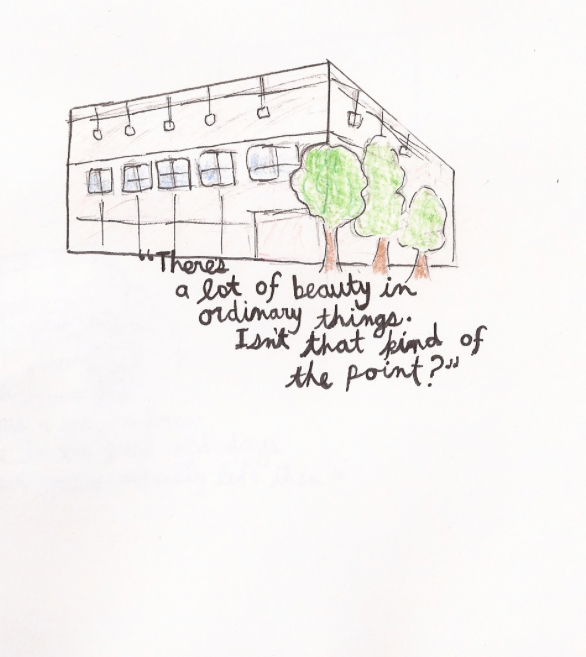 “There's
a lot of beauty in
ordinary things.
Isn't that kind of
the point?”